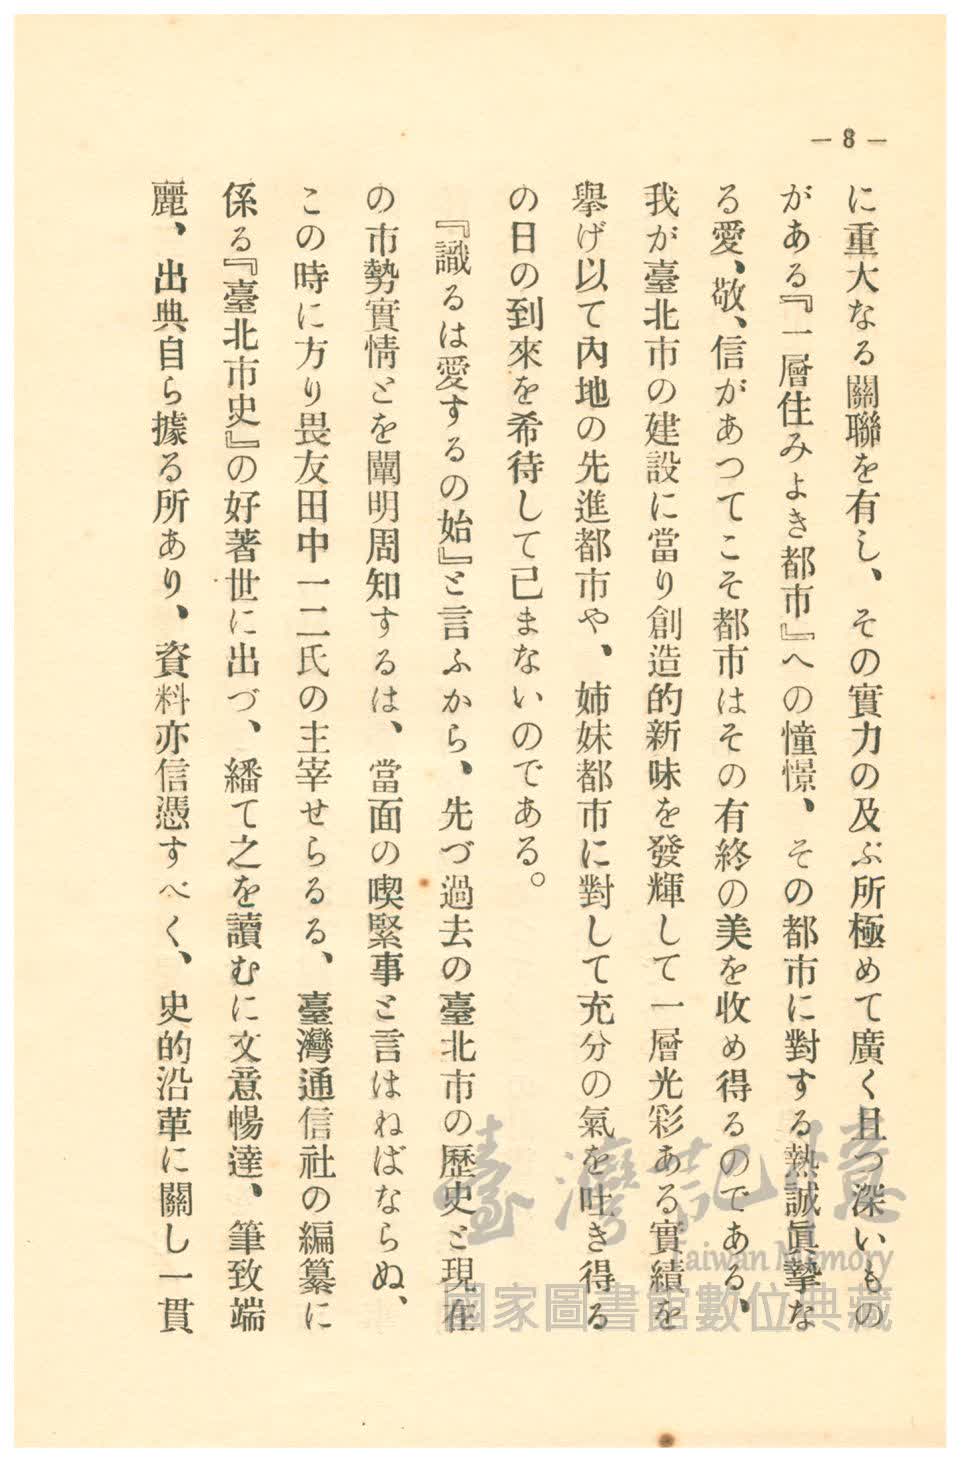 — 8 —
に重大なる關聯を有し、その實力の及ぶ所極めて廣く且つ深いもの
がある『一層住みよき都市』への憧憬、その都市に對する熱誠眞摯な
る愛、敬、信があつてこそ都市はその有終の美を收め得るのである、
我が臺北市の建設に當り創造的新味を發輝して一層光彩ある實績を
擧げ以て內地の先進都市や、姉妹都市に對して充分の氣を吐き得る
の日の到來を希待して已まないのである。
『識るは愛するの始』と言ふから、先づ過去の臺北市の歷史と現在
の市勢實情とを闡明周知するは、當面の喫緊事と言はねばならぬ、
この時に方り畏友田中一二氏の主宰せらるる、臺灣通信社の編纂に
係る『臺北市史』の好著世に出づ、繙て之を讀むに文意暢達、筆致端
麗、出典自ら據る所あり、資料亦信憑すべく、史的沿革に關し一貫
臺灣記憶
Taiwan Memory
國家圖書館數位典藏